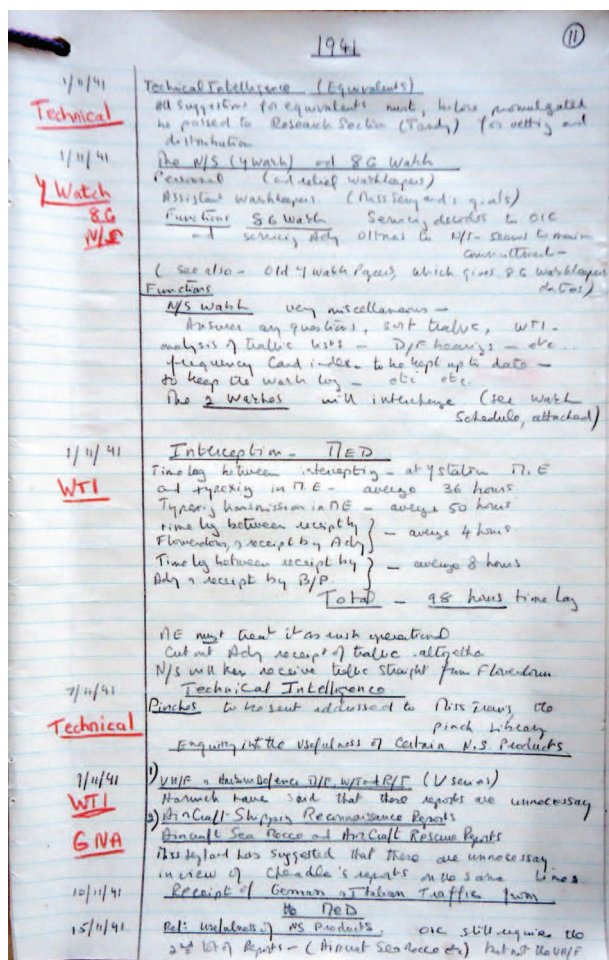 1941
11
1/11/41
Technical Intelligence (Equivalents)
Technical
All suggestions for equivalents must, before promulgated
be passed to Research Section (Tandy) for vetting and
distribution
1/11/41
The N/S (Y Watch) and 8G Watch
Y Watch
8G
N/S
Personnel (and relief watchkeepers)
Assistant watchkeepers. (Miss Senyard's girls)
Functions 8G Watch Servicing decodes to OIC
and servicing Ady to N/S - seems to main
commitment -
(See also - Old Y Watch Papers, which gives 8G Watchkeepers
duties)
Functions
N/S Watch very miscellaneous -
Answer any questions, sort traffic, WTI -
analysis of traffic lists - D/F bearings - etc
frequency Card index - to be kept up to date -
to keep the watch log - etc etc.
The 2 Watches will interchange (see Watch
Schedule, attached)
1/11/41
Interception - MED
WTI
Time lag between intercepting - at Y station M.E
and typexing in M.E - average 36 hours
Typexing transmission in ME - average 50 hours
time lag between receipt by
Flowerdown, & receipt by Ady } - average 4 hours
Time lag between receipt by
Ady & receipt by B/P. } - average 8 hours
Total - 98 hours time lag
ME must treat it as rush operational
Cut out Ady receipt of traffic altogether
N/S will then receive traffic straight from Flowerdown
7/11/41
Technical Intelligence
Technical
Pinches to be sent addressed to Miss the
Pinch Library
Enquiry into the Usefulness of Certain N.S. Products
9/11/41
1) VH/F & Harbour Defence M/F, W/T and R/T (V series)
WTI
Harwich have said that these reports are unnecessary
2) AirCraft Shipping Reconnaissance Reports
GNA
Aircraft Sea Recce and AirCraft Rescue Reports
has suggested that these are unnecessary
in view of Cheadle's reports on the same lines
10/11/41
Receipt of German & Italian Traffic from
the MED
15/11/41
Ref: Usefulness of NS Products. OIC still requires the
2nd lot of Reports - (Aircraft Sea Recce etc) but not the VH/F